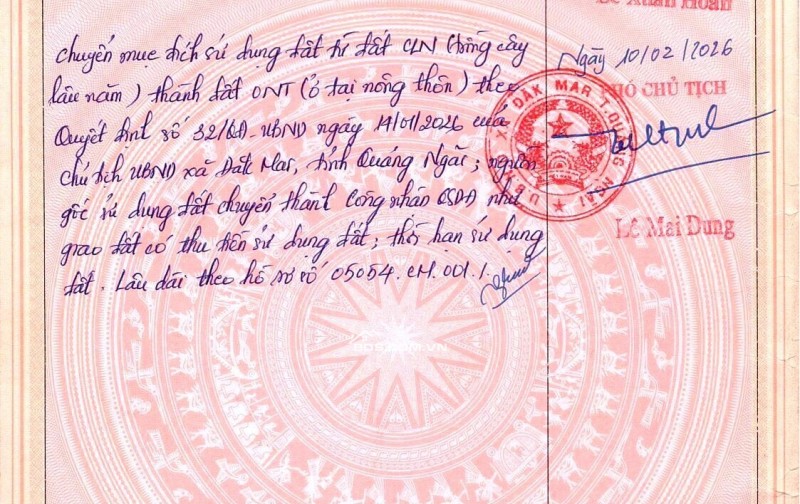 Lê Xuân Hoàn
chuyển mục đích sử dụng đất từ đất CLN (trồng cây
lâu năm) thành đất ONT (ở tại nông thôn) theo
Quyết định số 32/QĐ-UBND ngày 14/01/2026 của
chủ tịch UBND xã Đăk Mar, tỉnh Quảng Ngãi; nguồn
gốc sử dụng đất chuyển thành Công nhận QSDĐ như
giao đất có thu tiền sử dụng đất; thời hạn sử dụng
đất. Lâu dài theo hồ sơ số 05054.CM.001.
Ngày 10/02/2026
PHÓ CHỦ TỊCH
U.B.N.D XÃ ĐĂK MAR T. QUẢNG NGÃI
Lê Mai Dung